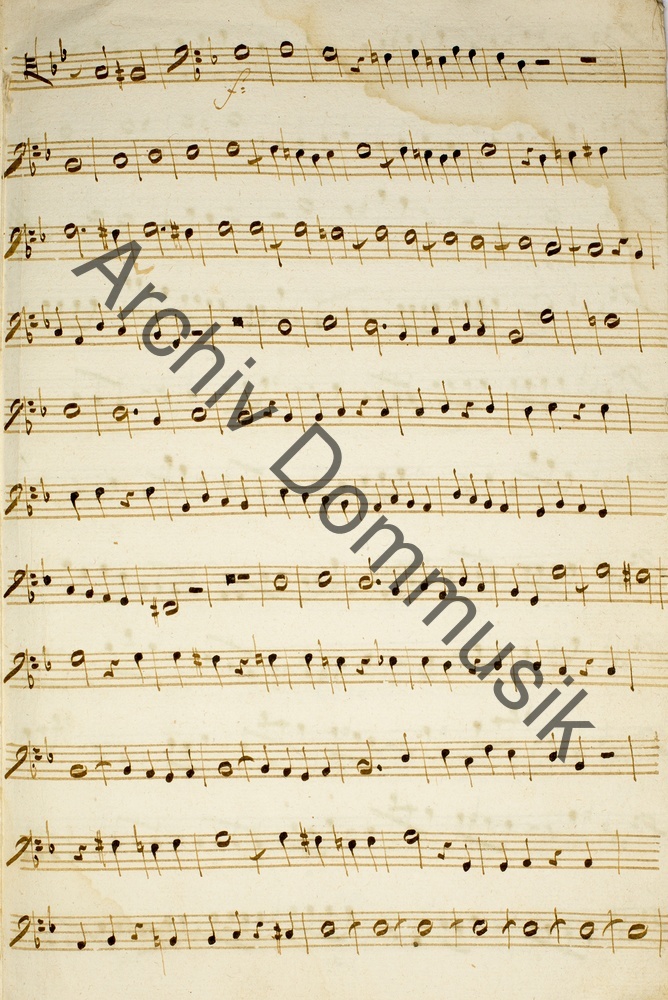 f:
Archiv Dommusik